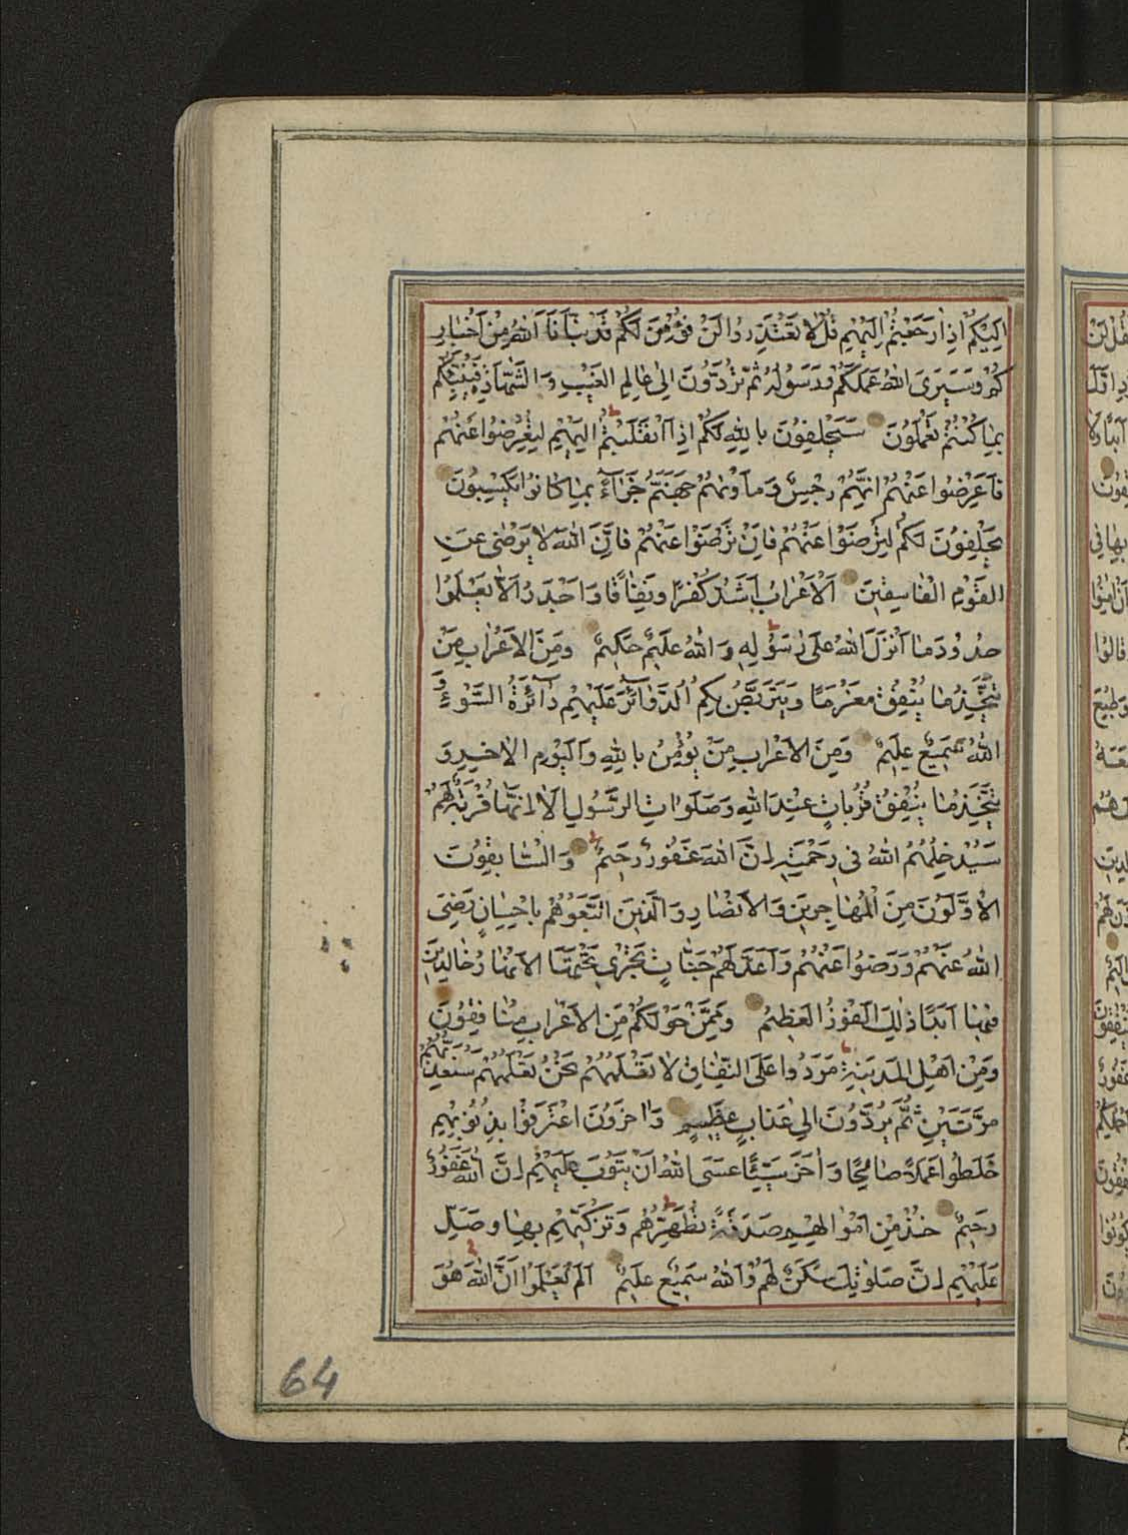 اِلَيْكُمْ اِذٰا رَجَعْتُمْ اِلَيْهِمْ قُلْ لاٰ تَعْتَذِرُوا لَنْ نُؤْمِنَ لَكُمْ قَدْ نَبَّأَنَا اللهُ مِنْ اَخْبٰارِ
كُمْ وَسَيَرَى اللهُ عَمَلَكُمْ وَرَسُولُهُ ثُمَّ تُرَدُّونَ اِلىٰ عٰالِمِ الْغَيْبِ وَالشَّهٰادَةِ فَيُنَبِّئُكُمْ
بِمٰا كُنْتُمْ تَعْمَلُونَ سَيَحْلِفُونَ بِاللهِ لَكُمْ اِذَا انْقَلَبْتُمْ اِلَيْهِمْ لِتُعْرِضُوا عَنْهُمْ
فَاَعْرِضُوا عَنْهُمْ اِنَّهُمْ رِجْسٌ وَمَأْوٰيهُمْ جَهَنَّمُ جَزٰآءً بِمٰا كٰانُوا يَكْسِبُونَ
يَحْلِفُونَ لَكُمْ لِتَرْضَوْا عَنْهُمْ فَاِنْ تَرْضَوْا عَنْهُمْ فَاِنَّ اللهَ لاٰ يَرْضٰى عَنِ
الْقَوْمِ الْفٰاسِقِينَ اَلْاَعْرٰابُ اَشَدُّ كُفْرًا وَنِفٰاقًا وَاَجْدَرُ اَلاّٰ يَعْلَمُوا
حُدُودَ مٰا اَنْزَلَ اللهُ عَلىٰ رَسُولِهِ وَاللهُ عَلِيمٌ حَكِيمٌ وَمِنَ الْاَعْرٰابِ مَنْ
يَتَّخِذُ مٰا يُنْفِقُ مَغْرَمًا وَيَتَرَبَّصُ بِكُمُ الدَّوٰآئِرَ عَلَيْهِمْ دٰآئِرَةُ السَّوْءِ وَ
اللهُ سَمِيعٌ عَلِيمٌ وَمِنَ الْاَعْرٰابِ مَنْ يُؤْمِنُ بِاللهِ وَالْيَوْمِ الْاٰخِرِ وَ
يَتَّخِذُ مٰا يُنْفِقُ قُرُبٰاتٍ عِنْدَ اللهِ وَصَلَوٰاتِ الرَّسُولِ اَلاٰ اِنَّهٰا قُرْبَةٌ لَهُمْ
سَيُدْخِلُهُمُ اللهُ فِى رَحْمَتِهِ اِنَّ اللهَ غَفُورٌ رَحِيمٌ وَالسّٰابِقُونَ
الْاَوَّلُونَ مِنَ الْمُهٰاجِرِينَ وَالْاَنْصٰارِ وَالَّذِينَ اتَّبَعُوهُمْ بِاِحْسٰانٍ رَضِىَ
اللهُ عَنْهُمْ وَرَضُوا عَنْهُمْ وَاَعَدَّ لَهُمْ جَنّٰاتٍ تَجْرِى تَحْتَهَا الْاَنْهٰارُ خٰالِدِينَ
فِيهٰا اَبَدًا ذٰلِكَ الْفَوْزُ الْعَظِيمُ وَمِمَّنْ حَوْلَكُمْ مِنَ الْاَعْرٰابِ مُنٰافِقُونَ
وَمِنْ اَهْلِ الْمَدِينَةِ مَرَدُوا عَلَى النِّفٰاقِ لاٰ تَعْلَمُهُمْ نَحْنُ نَعْلَمُهُمْ سَنُعَذِّبُهُمْ
مَرَّتَيْنِ ثُمَّ يُرَدُّونَ اِلىٰ عَذٰابٍ عَظِيمٍ وَاٰخَرُونَ اعْتَرَفُوا بِذُنُوبِهِمْ
خَلَطُوا عَمَلاً صٰالِحًا وَاٰخَرَ سَيِّئًا عَسَى اللهُ اَنْ يَتُوبَ عَلَيْهِمْ اِنَّ اللهَ غَفُورٌ
رَحِيمٌ خُذْ مِنْ اَمْوٰالِهِمْ صَدَقَةً تُطَهِّرُهُمْ وَتُزَكِّيهِمْ بِهٰا وَصَلِّ
عَلَيْهِمْ اِنَّ صَلوٰتَكَ سَكَنٌ لَهُمْ وَاللهُ سَمِيعٌ عَلِيمٌ اَلَمْ يَعْلَمُوا اَنَّ اللهَ هُوَ
64